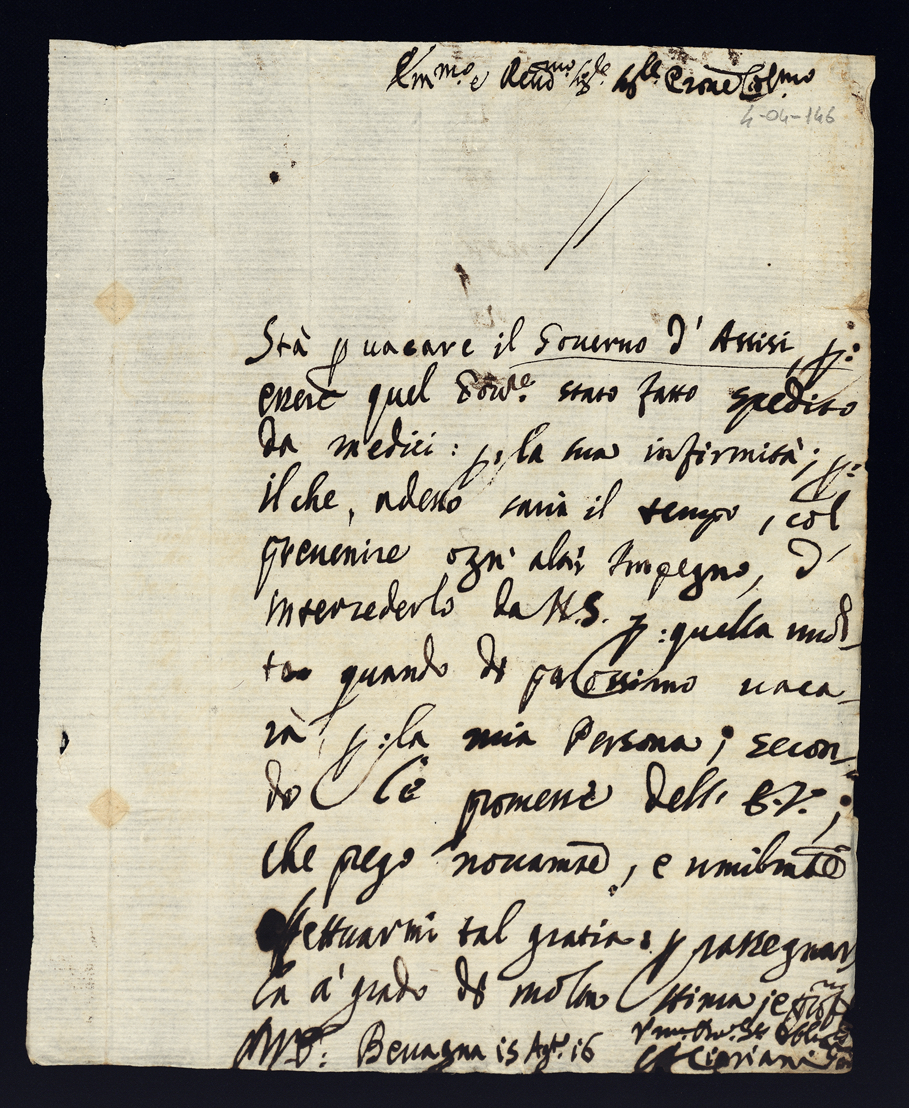 Em.mo e Rev.mo Sig.re Sig.re P.rone Col.mo
4-04-146
Stà p vacare il Governo d' Assisi, p:
essere quel Gov.re stato fatto spedito
da medici: p: la sua infirmità; p:
il che, adesso saria il tempo, col
prevenire ogn' altr' Impegno, d'
intercederlo da N.S. p: quella
quando di vaca
rà p: la mia Persona; secon
do le promesse dell' E.V.;
che prego novamte, e umilmte
effettuarmi tal gratia: p rassegnar
la à grado di molta stima, e
Bevagna 15 Ag.to 16
Cipriani